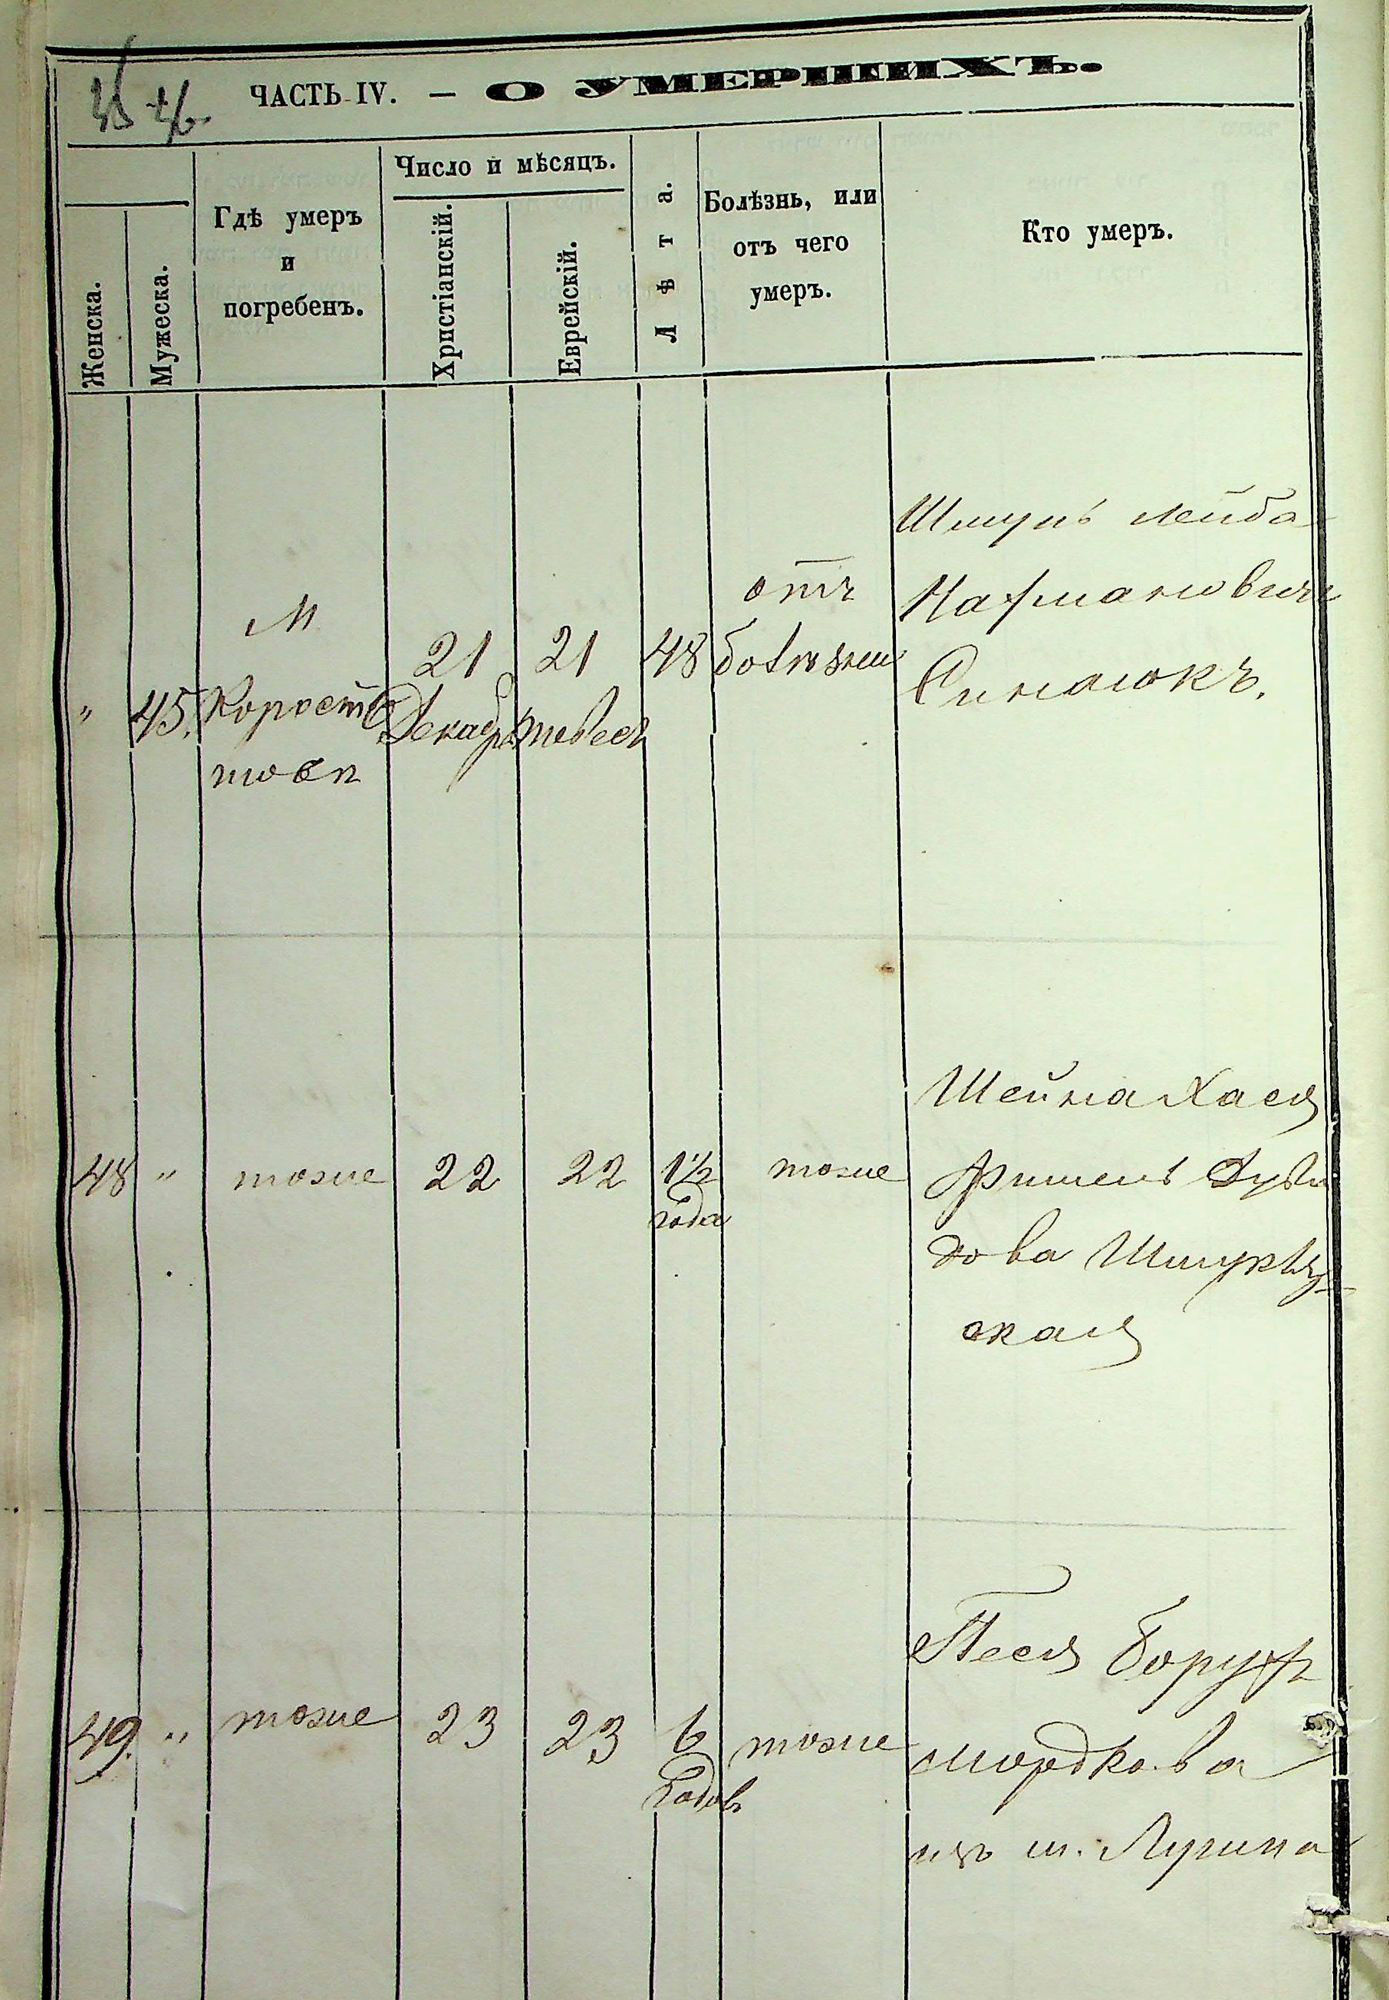 45 46.
ЧАСТЬ IV. — О УМЕРШИХЪ.
Женска.
Мужеска.
Гдѣ умеръ
и
погребенъ.
Число и мѣсяцъ.
Христіанскій.
Еврейскій.
Лѣта.
Болѣзнь, или
отъ чего
умеръ.
Кто умеръ.
" 45.
М
Корост
шовп
21
Декабр
21
тевесъ
48
отъ
болѣзни
Шмуль Лейба
Нахмановичъ
Синюкъ.
48 "
тоже
22
22
1½
года
тоже
Шейна Хася
Фишель Дуви
дова Шмукл
ская
49. "
тоже
23
23
6
годовъ
тоже
Песя Борухъ
Мордкова
изъ м. Лугина